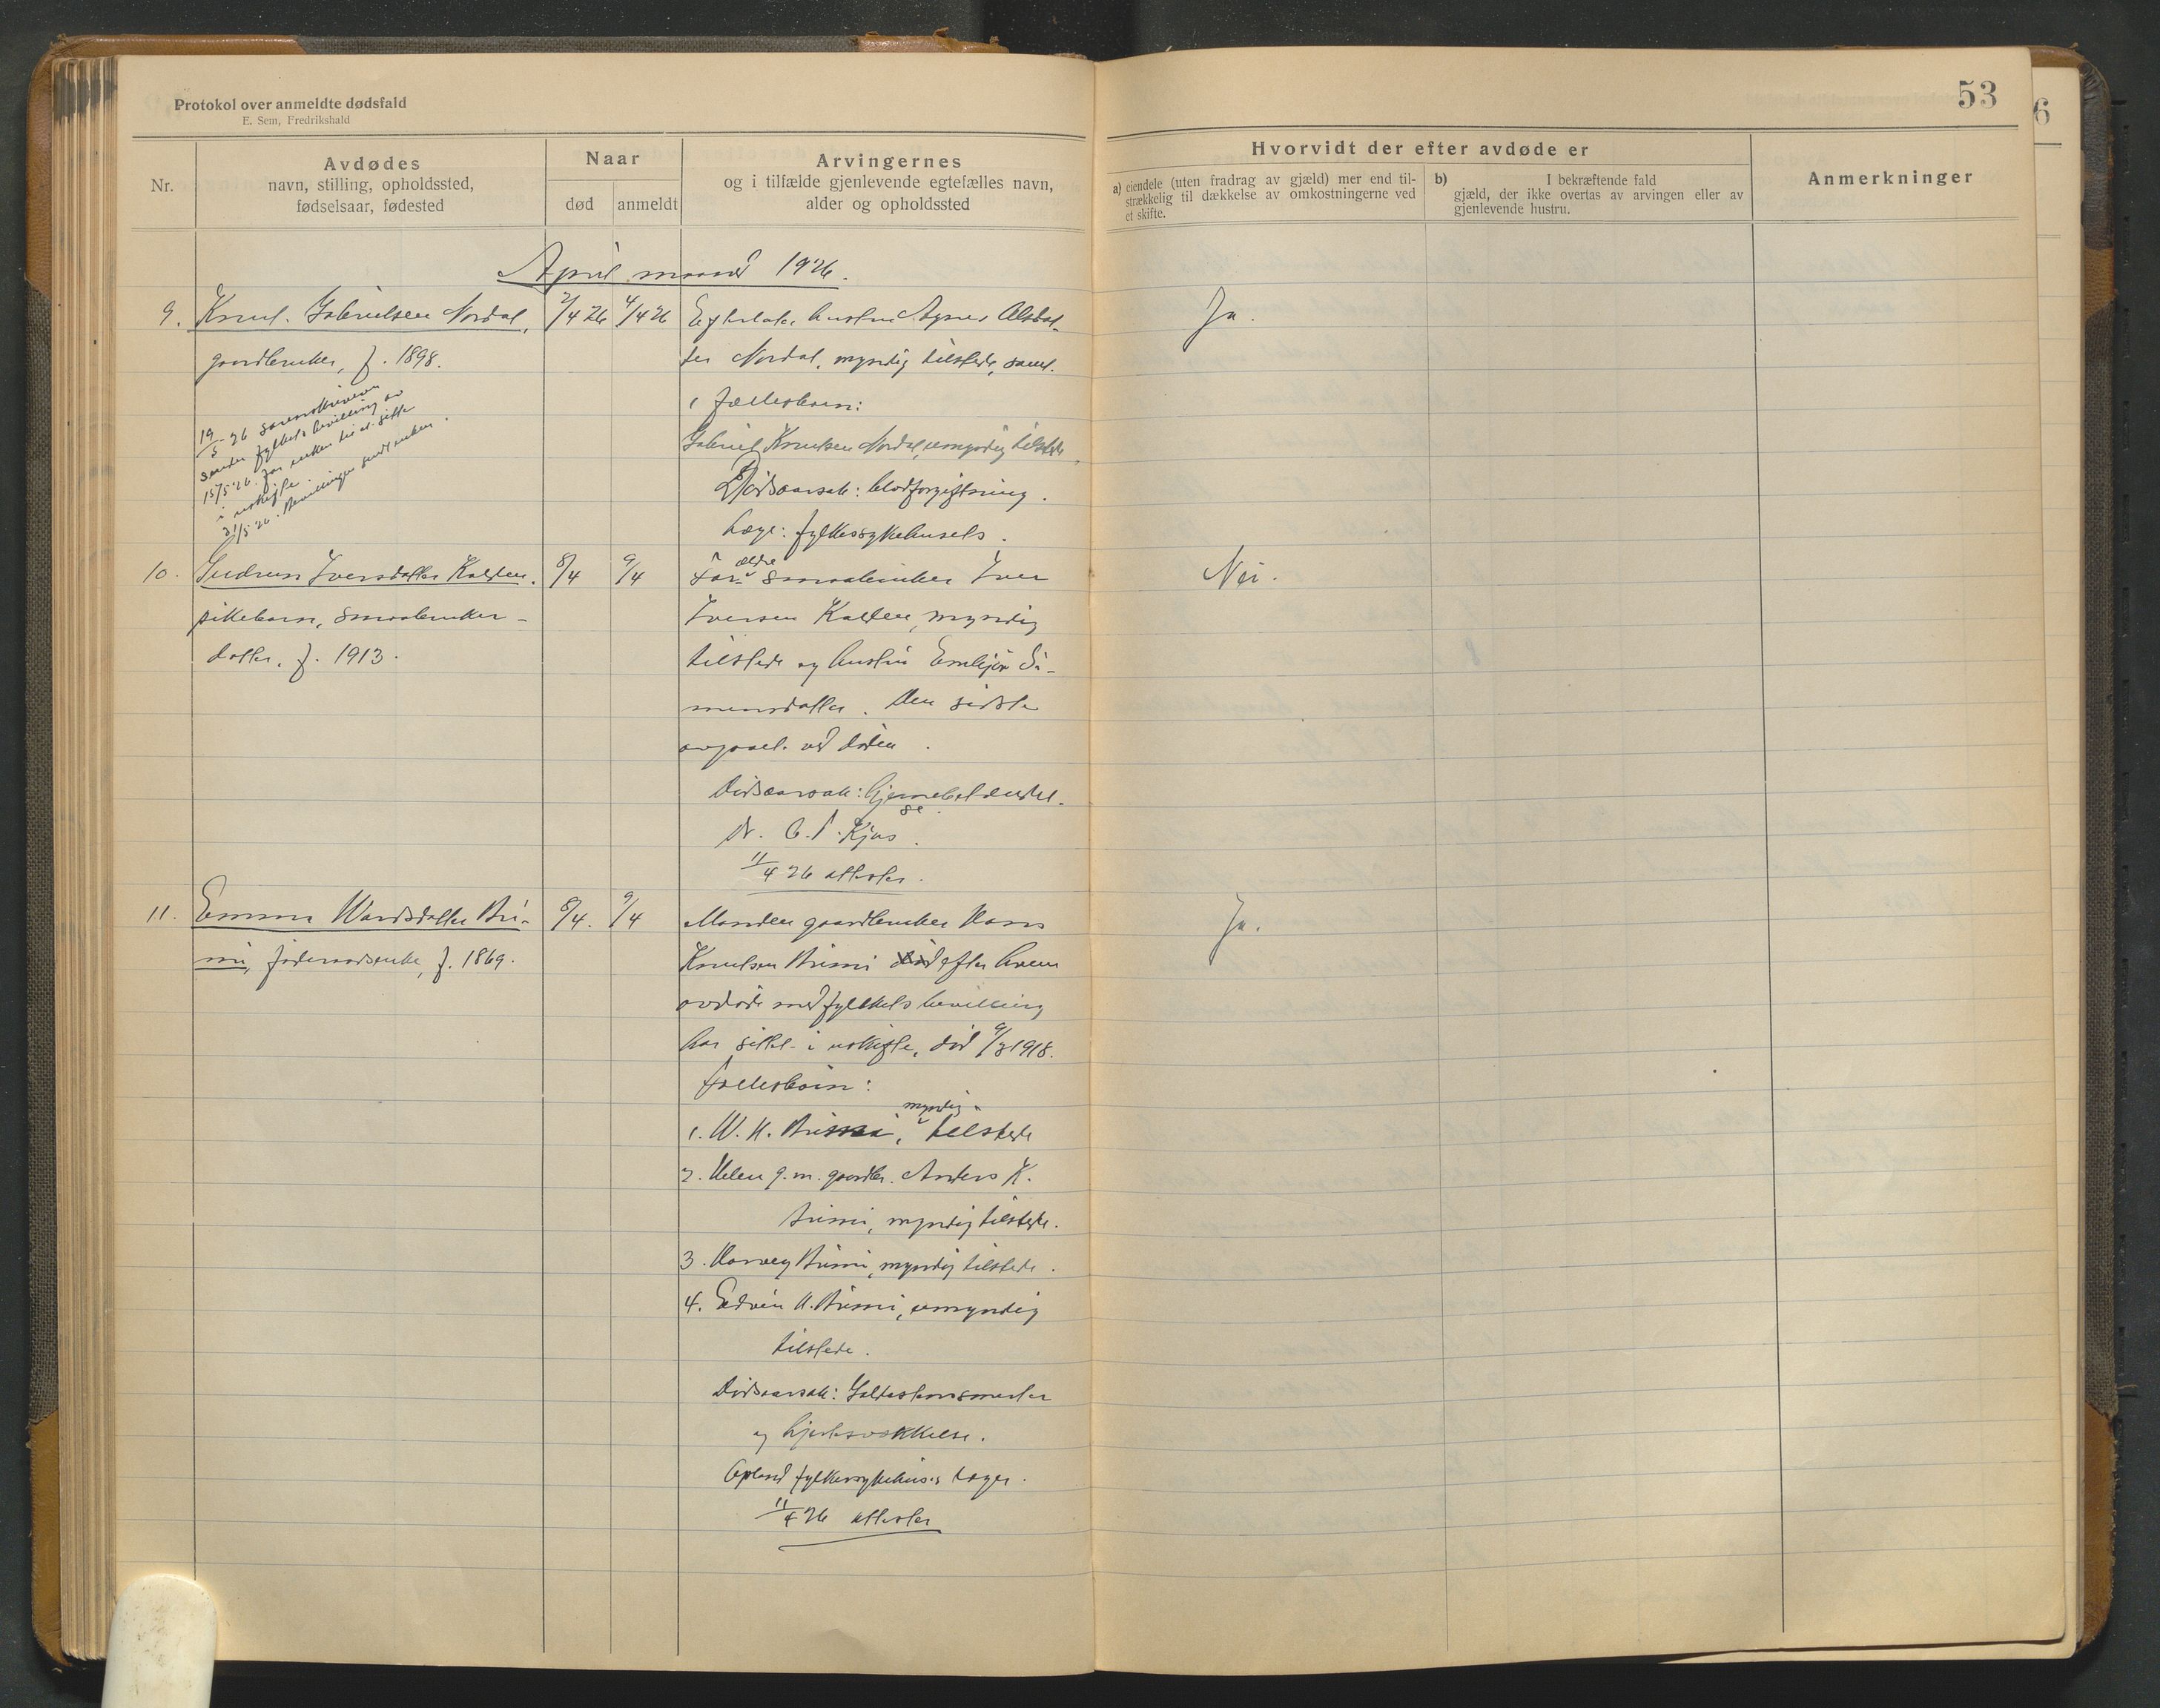 Protokol over anmeldte dødsfald
E. Sem, Fredrikshald
53
6
Nr.
Avdødes
navn, stilling, opholdssted,
fødselsaar, fødested
Naar
død
anmeldt
Arvingernes
og i tilfælde gjenlevende egtefælles navn,
alder og opholdssted
Hvorvidt der efter avdøde er
a) eiendele (uten fradrag av gjæld) mer end til-
strækkelig til dækkelse av omkostningerne ved
et skifte.
b) I bekræftende fald
gjæld, der ikke overtas av arvingen eller av
gjenlevende hustru.
Anmerkninger
April maaned 1926.
9. Knut Gabrielsen Nordal,
gaardbruker, f. 1898.
19/5-26 sorenskriveren
sender fylkets bevilling av
15/5 26. for enken til at sitte
i uskifte.
31/5 26. Bevillingen sendt enken.
2/4 26
4/4 26
Efterlater hustru Agnes
ter Nordal, myndig tilstede, samt
1 fællesbarn:
Gabriel Knutsen Nordal, umyndig tilstede
Dødsaarsak: blodforgiftning.
Læge: fylkessykehusets.
Ja.
10. Gudrun Iversdatter Kolden.
pikebarn, smaabruker-
datter, f. 1913.
8/4
9/4
Forældre smaabruker Iver
Iversen Kolden, myndig
tilstede og hustru Si-
mensdatter. Den sidste
avgaaet ved døden.
Dødsaarsak: hjernebetændel-
se.
Dr. Kjos.
11/4 26 attester.
Nei.
11. Emma Wardsdatter Bri-
mi, føderaadsenke, f. 1869.
8/4.
9/4
Manden gaardbruker Hans
Knutsen Brimi død efter hvem
avdøde med fylkets bevilling
har sittet i uskifte, død 9/3 1918.
Fællesbørn:
1. W. H. Brimi, myndig tilstede
2. Helen g. m. gaardbr. Anders K.
Brimi, myndig tilstede.
3. Harvey Brimi, myndig tilstede.
4. Edvin H. Brimi, umyndig
tilstede.
Dødsaarsak: Galdestensmerter
og hjertesvækkelse.
Opland fylkessykehus's læger.
11/4 26 attester
Ja.